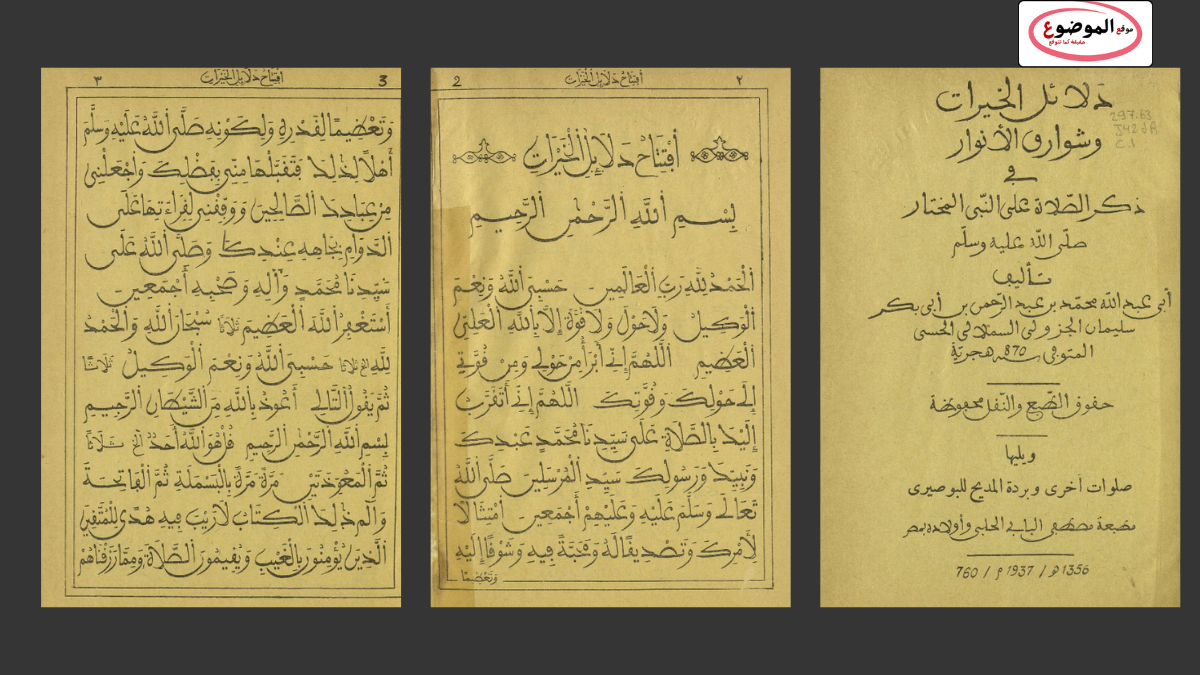 موقع الموضوع
حقيقة كما تتوقع
دلائل الخيرات
وشوارق الأنوار
في
ذكر الصّلاة على النّبي المختار
صلّى الله عليه وسلّم
تأليف
أبي عبد الله محمّد بن عبد الرّحمن بن أبي بكر
سليمان الجزولي السملالي الحسني
المتوفى سـ 870ـنة هجريّة
حقوق الطّبع والنّقل محفوظة
ويليها
صلوات أخرى وبردة المديح للبوصيرى
مطبعة مصطفى البابي الحلبي وأولاده بمصر
1356 ه / 1937 م / 760
297.63
J42dA
C.1
٢
افتتاح دلائل الخيرات
2
اِفْتِتَاحُ دَلَائِلِ الْخَيْرَاتِ
بِسْمِ اللَّهِ الرَّحْمٰنِ الرَّحِيمِ
الْحَمْدُ لِلَّهِ رَبِّ الْعَالَمِينَ حَسْبِيَ اللَّهُ وَنِعْمَ
الْوَكِيلُ وَلَا حَوْلَ وَلَا قُوَّةَ إِلَّا بِاللَّهِ الْعَلِيِّ
الْعَظِيمِ اللَّهُمَّ إِنِّي أَبْرَأُ مِنْ حَوْلِي وَمِنْ قُوَّتِي
إِلَى حَوْلِكَ وَقُوَّتِكَ اللَّهُمَّ إِنِّي أَتَقَرَّبُ
إِلَيْكَ بِالصَّلَاةِ عَلَى سَيِّدِنَا مُحَمَّدٍ عَبْدِكَ
وَنَبِيِّكَ وَرَسُولِكَ سَيِّدِ الْمُرْسَلِينَ صَلَّى اللَّهُ
تَعَالَى وَسَلَّمَ عَلَيْهِ وَعَلَيْهِمْ أَجْمَعِينَ امْتِثَالًا
لِأَمْرِكَ وَتَصْدِيقًا لَهُ وَمَحَبَّةً فِيهِ وَشَوْقًا إِلَيْهِ
وَتَعْظِيمًا
3
افتتاح دلائل الخيرات
٣
وَتَعْظِيمًا لِقَدْرِهِ وَلِكَوْنِهِ صَلَّى اللَّهُ عَلَيْهِ وَسَلَّمَ
أَهْلًا لِذَلِكَ فَتَقَبَّلْهَا مِنِّي بِفَضْلِكَ وَاجْعَلْنِي
مِنْ عِبَادِكَ الصَّالِحِينَ وَوَفِّقْنِي لِقِرَاءَتِهَا عَلَى
الدَّوَامِ بِجَاهِهِ عِنْدَكَ وَصَلَّى اللَّهُ عَلَى
سَيِّدِنَا مُحَمَّدٍ وَآلِهِ وَصَحْبِهِ أَجْمَعِينَ
أَسْتَغْفِرُ اللَّهَ الْعَظِيمَ ثلاثا سُبْحَانَ اللَّهِ وَالْحَمْدُ
لِلَّهِ الخ ثلاثا حَسْبِيَ اللَّهُ وَنِعْمَ الْوَكِيلُ ثلاثا
ثُمَّ يَقُولُ التَّالِي أَعُوذُ بِاللَّهِ مِنَ الشَّيْطَانِ الرَّجِيمِ
بِسْمِ اللَّهِ الرَّحْمٰنِ الرَّحِيمِ قُلْ هُوَ اللَّهُ أَحَدٌ الخ ثلاثا
ثُمَّ الْمُعَوِّذَتَيْنِ مَرَّةً مَرَّةً بِالْبَسْمَلَةِ ثُمَّ الْفَاتِحَةَ
وَالٓمٓ ذَلِكَ الْكِتَابُ لَا رَيْبَ فِيهِ هُدًى لِلْمُتَّقِينَ
الَّذِينَ يُؤْمِنُونَ بِالْغَيْبِ وَيُقِيمُونَ الصَّلَاةَ وَمِمَّا رَزَقْنَاهُمْ